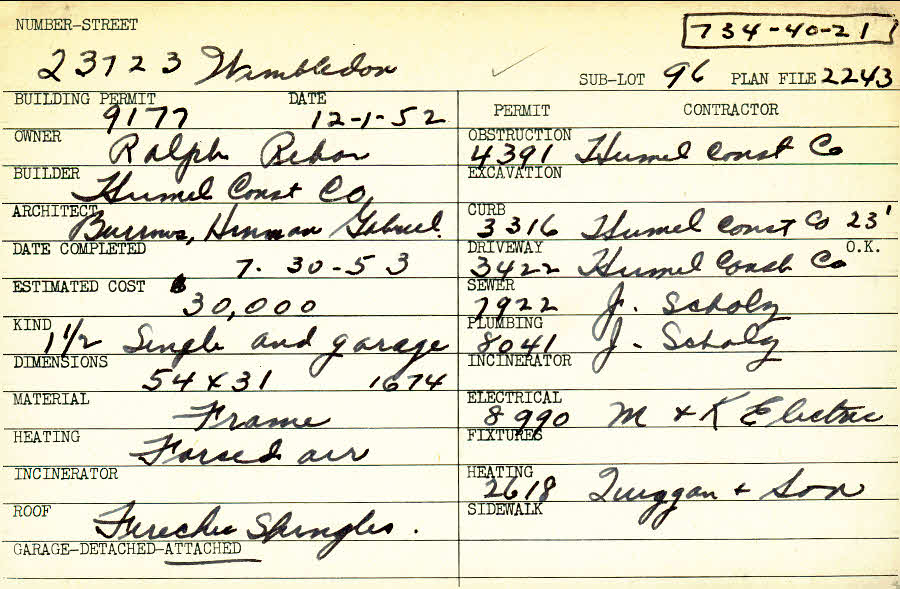 NUMBER-STREET
734-40-21
23723 Wimbledon
SUB-LOT 96 PLAN FILE 2243
BUILDING PERMIT DATE
9177 12-1-52
PERMIT CONTRACTOR
OWNER Ralph Rebar
OBSTRUCTION
4391 Humel Const Co
BUILDER Humel Const Co
EXCAVATION
ARCHITECT Burrows, Hinman Gabriel.
CURB
3316 Humel Const Co 23'
DATE COMPLETED
7-30-53
DRIVEWAY O.K.
3422 Humel Const Co
ESTIMATED COST $30,000
SEWER
7922 J. Scholz
KIND
1 1/2 Single and garage
PLUMBING
8041 J. Scholz
DIMENSIONS
54 x 31 1674
INCINERATOR
MATERIAL Frame
ELECTRICAL
8990 M & K Electric
HEATING Forsed air
FIXTURES
INCINERATOR
HEATING
2618 & Son
ROOF Shingles.
SIDEWALK
GARAGE-DETACHED-ATTACHED